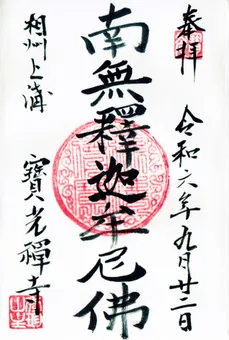 奉拜
令和六年九月廿二日
南無釋迦牟尼佛
相州上溝
寶光禪寺